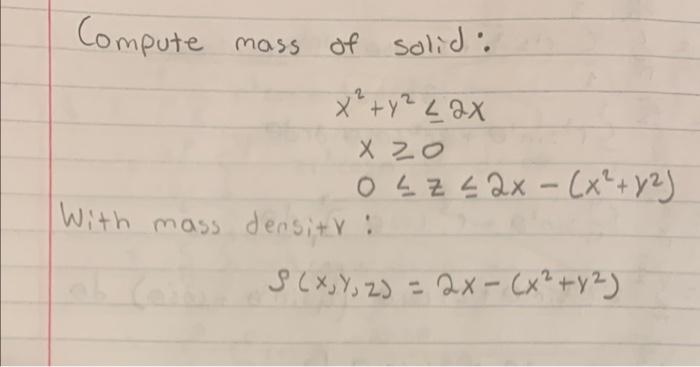 Compute mass of solid:
x² + y² ≤ 2x
x ≥ 0
0 ≤ z ≤ 2x - (x² + y²)
With mass density:
ρ(x, y, z) = 2x - (x² + y²)